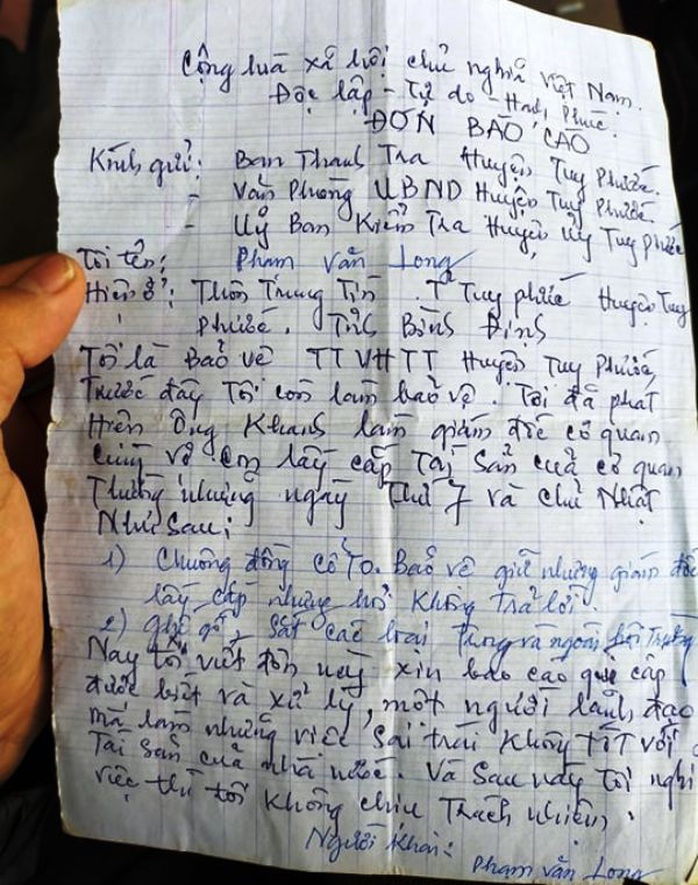 Cộng hoà xã hội chủ nghĩa Việt Nam.
Độc lập - Tự do - Hạnh Phúc.
ĐƠN BÁO CÁO
Kính gửi: Ban Thanh Tra Huyện Tuy Phước.
- Văn Phòng UBND Huyện Tuy Phước.
- Uỷ Ban Kiểm Tra Huyện Uỷ Tuy Phước
Tôi tên: Phạm Văn Long
Hiện ở: Thôn Trung Tín . T² Tuy phước Huyện Tuy
Phước. Tỉnh Bình Định
Tôi là Bảo vệ TTVHTT Huyện Tuy Phước,
Trước đây Tôi còn làm bảo vệ. Tôi đã phát
Hiện Ông Khanh làm giám đốc cơ quan
cùng vợ con lấy cắp Tài Sản của cơ quan
Thường những ngày Thứ 7 và chủ Nhật
Như Sau:
1) Chuông đồng cổ To. Bảo vệ giữ nhưng giám đốc
lấy cắp nhưng hỏi không trả lời.
2) ghế gỗ, sắt các loại Trong và ngoài hội Trường
Nay tôi viết đơn này xin báo cáo quý cấp
được biết và xử lý, một người lãnh đạo
mà làm những việc sai trái không tốt với
Tài Sản của nhà nước. Và sau này tôi nghỉ
việc thì tôi không chịu Trách nhiệm.
Người Khai:
Phạm Văn Long